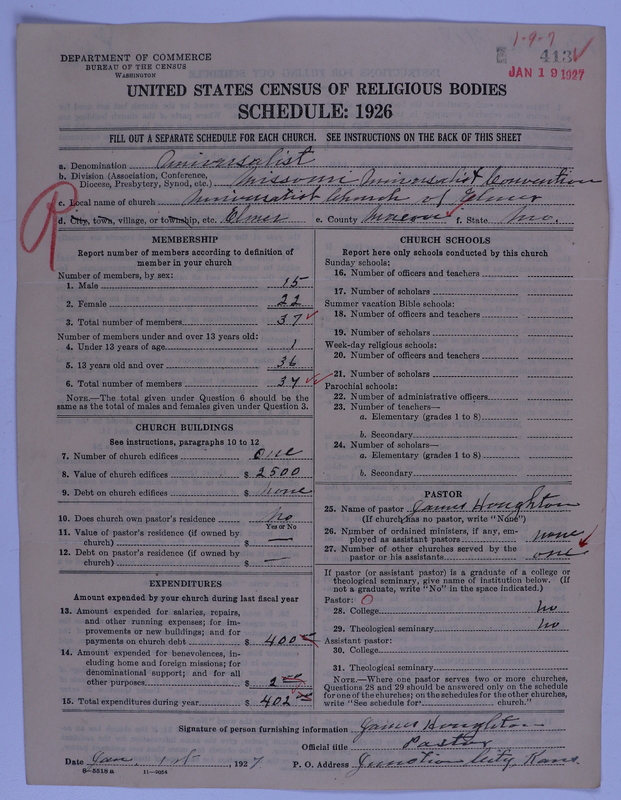 1-9-7
413
JAN 19 1927
DEPARTMENT OF COMMERCE
BUREAU OF THE CENSUS
WASHINGTON
UNITED STATES CENSUS OF RELIGIOUS BODIES
SCHEDULE: 1926
FILL OUT A SEPARATE SCHEDULE FOR EACH CHURCH. SEE INSTRUCTIONS ON THE BACK OF THIS SHEET
a. Denomination Universalist
b. Division (Association, Conference,
Diocese, Presbytery, Synod, etc.) Missouri Universalist Convention
c. Local name of church Universalist Church of Elmer
d. City, town, village, or township, etc. Elmer e. County Macon f. State Mo.
R
MEMBERSHIP
Report number of members according to definition of
member in your church
Number of members, by sex:
1. Male 15
2. Female 22
3. Total number of members 37
Number of members under and over 13 years old:
4. Under 13 years of age 1
5. 13 years old and over 36
6. Total number of members 37
NOTE.—The total given under Question 6 should be the
same as the total of males and females given under Question 3.
CHURCH BUILDINGS
See instructions, paragraphs 10 to 12
7. Number of church edifices One
8. Value of church edifices $ 2500
9. Debt on church edifices $ None
10. Does church own pastor's residence No
Yes or No
11. Value of pastor's residence (if owned by
church) $ —
12. Debt on pastor's residence (if owned by
church) $ —
EXPENDITURES
Amount expended by your church during last fiscal year
13. Amount expended for salaries, repairs,
and other running expenses; for im-
provements or new buildings; and for
payments on church debt $ 400
14. Amount expended for benevolences, in-
cluding home and foreign missions; for
denominational support; and for all
other purposes $ 2 00
15. Total expenditures during year $ 402 00
CHURCH SCHOOLS
Report here only schools conducted by this church
Sunday schools:
16. Number of officers and teachers
17. Number of scholars
Summer vacation Bible schools:
18. Number of officers and teachers
19. Number of scholars
Week-day religious schools:
20. Number of officers and teachers
21. Number of scholars
Parochial schools:
22. Number of administrative officers
23. Number of teachers—
a. Elementary (grades 1 to 8)
b. Secondary
24. Number of scholars—
a. Elementary (grades 1 to 8)
b. Secondary
PASTOR
25. Name of pastor James Houghton
(If church has no pastor, write "None")
26. Number of ordained ministers, if any, em-
ployed as assistant pastors none
27. Number of other churches served by the
pastor or his assistants one
If pastor (or assistant pastor) is a graduate of a college or
theological seminary, give name of institution below. (If
not a graduate, write "No" in the space indicated.)
Pastor: O
28. College No
29. Theological seminary No
Assistant pastor:
30. College
31. Theological seminary
NOTE.—Where one pastor serves two or more churches,
Questions 28 and 29 should be answered only on the schedule
for one of the churches; on the schedules for the other churches,
write "See schedule for church."
Signature of person furnishing information James Houghton
Official title Pastor
Date Jan. 1st, 1927 P. O. Address Junction City, Kans.
8-5518 a 11-9054